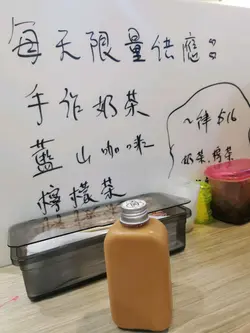 每天限量供應:
手作奶茶
藍山咖啡
檸檬茶
~律 $16
奶茶.檸茶